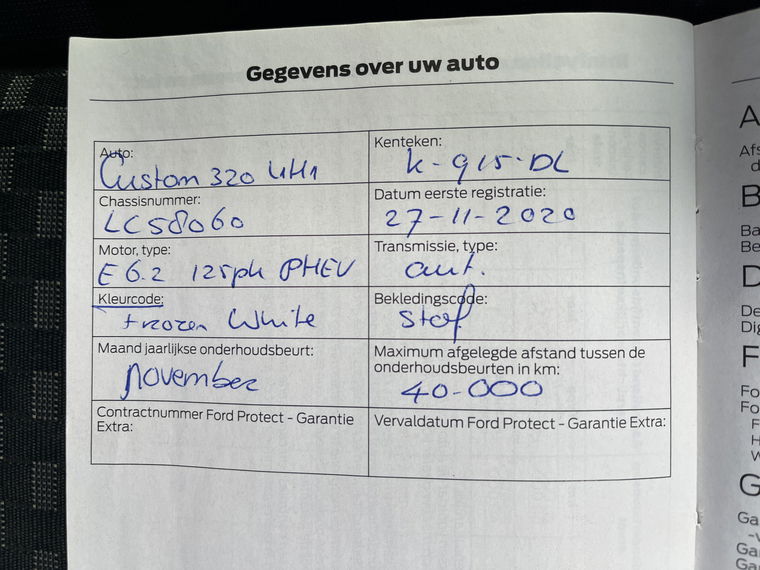 Gegevens over uw auto
Auto:
Custom 320 L1H1
Kenteken:
K-915-DL
Chassisnummer:
LC58060
Datum eerste registratie:
27-11-2020
Motor, type:
E6.2 125ph PHEV
Transmissie, type:
aut.
Kleurcode:
Frozen White
Bekledingscode:
Stof
Maand jaarlijkse onderhoudsbeurt:
November
Maximum afgelegde afstand tussen de
onderhoudsbeurten in km:
40-000
Contractnummer Ford Protect - Garantie
Extra:
Vervaldatum Ford Protect - Garantie Extra:
A
Afs
d
B
Ba
Be
D
De
Dig
F
Fo
Fo
F
H
W
G
Ga
-v
Ga
Ga